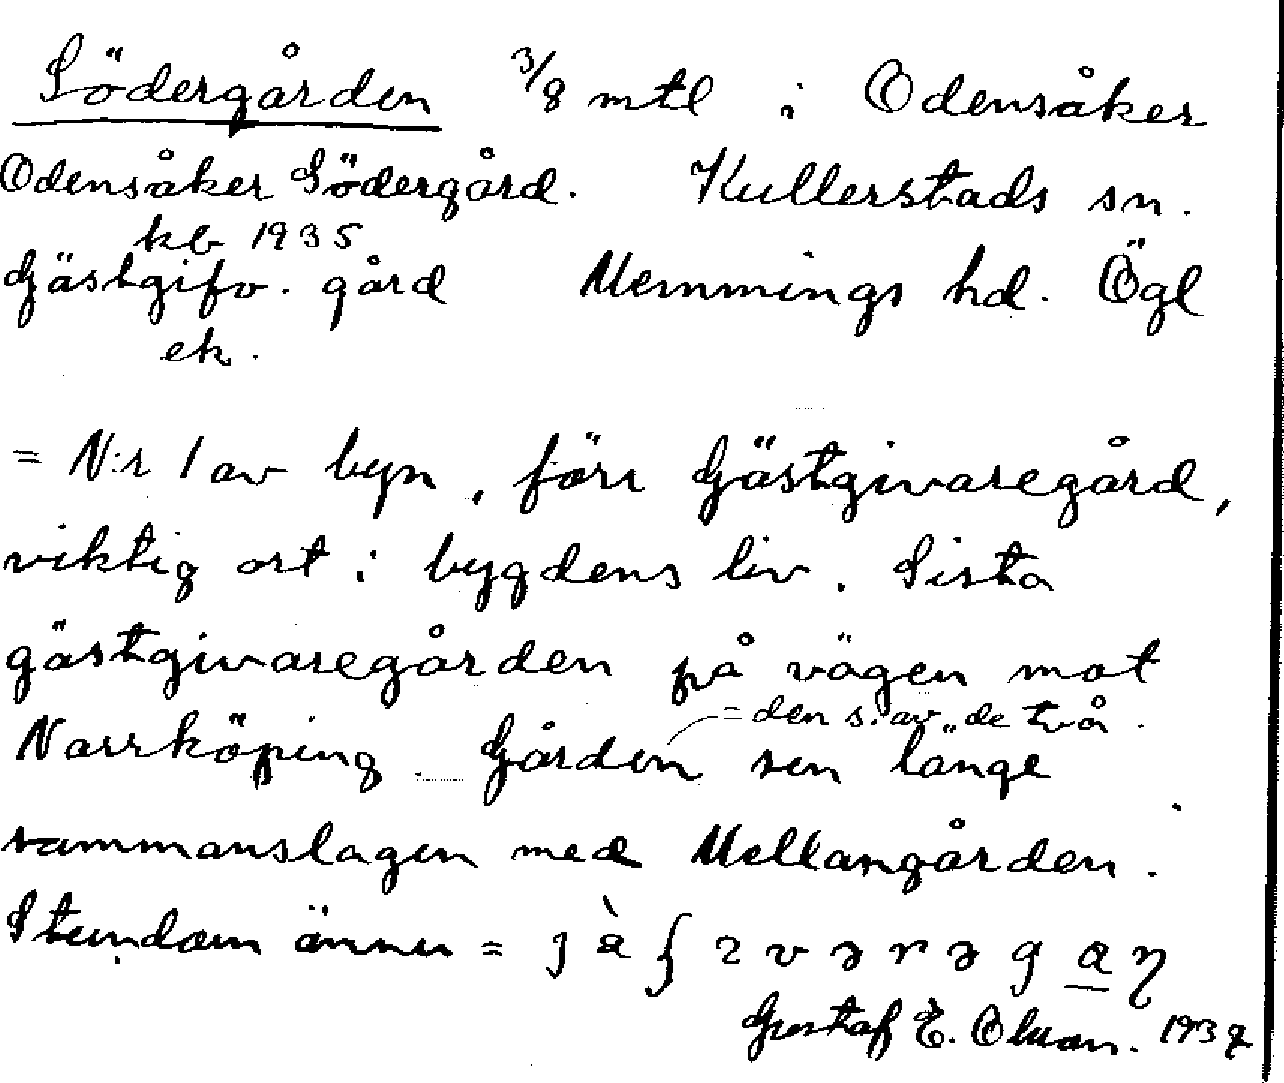 Södergården 3/8 mtl i Odensåker
Odensåker Södergård. Kullerstads sn.
kb 1935
Gästgifv. gård Memmings hd. Ögl
ek.
= N:r 1 av byn, förr Gästgivaregård,
viktig ort i bygdens liv. Sista
gästgivaregården på vägen mot
= den s. av de två.
Norrköping. Gården sen länge
sammanslagen med Mellangården.
Stundom ännu =
Gustaf E. Olsson. 1937